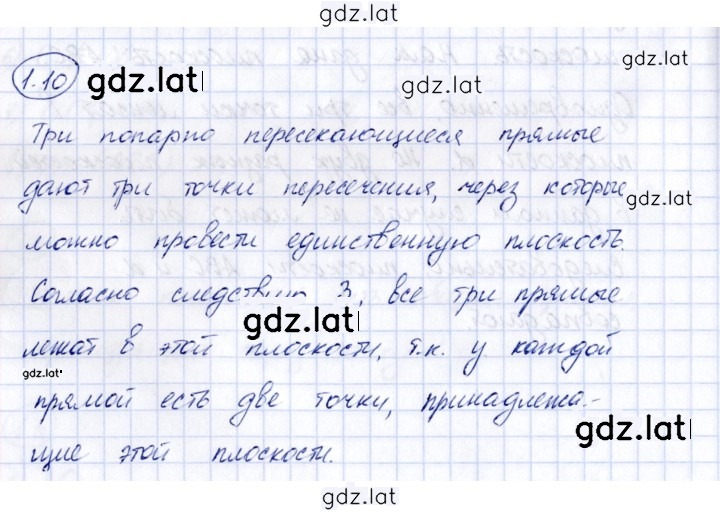 gdz.lat
1.10 gdz.lat gdz.lat
Три попарно пересекающиеся прямые
дают три точки пересечения, через которые
gdz.lat
можно провести единственную плоскость.
Согласно следствию 3, все три прямые
gdz.lat
лежат в этой плоскости, т.к. у каждой
gdz.lat
прямой есть две точки, принадлежа-
gdz.lat
щие этой плоскости.
gdz.lat